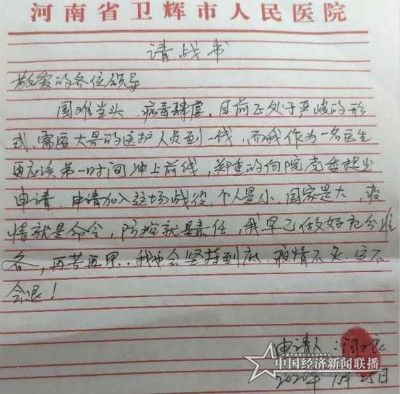 河南省卫辉市人民医院
请战书
敬爱的各位领导
国难当头，病毒肆虐，目前正处于严峻的形
式，需要大量的医护人员到一线，而我作为一名医生
更应该第一时间冲上前线，郑重的向院党委提出
申请，申请加入这场战役，个人是小，国家是大，疫
情就是命令，防控就是责任，我早已做好充分准
备，再苦再累，我也会坚持到底 疫情不灭 定不
会退！
申请人：闫
中国经济新闻联播
2020年1月25日